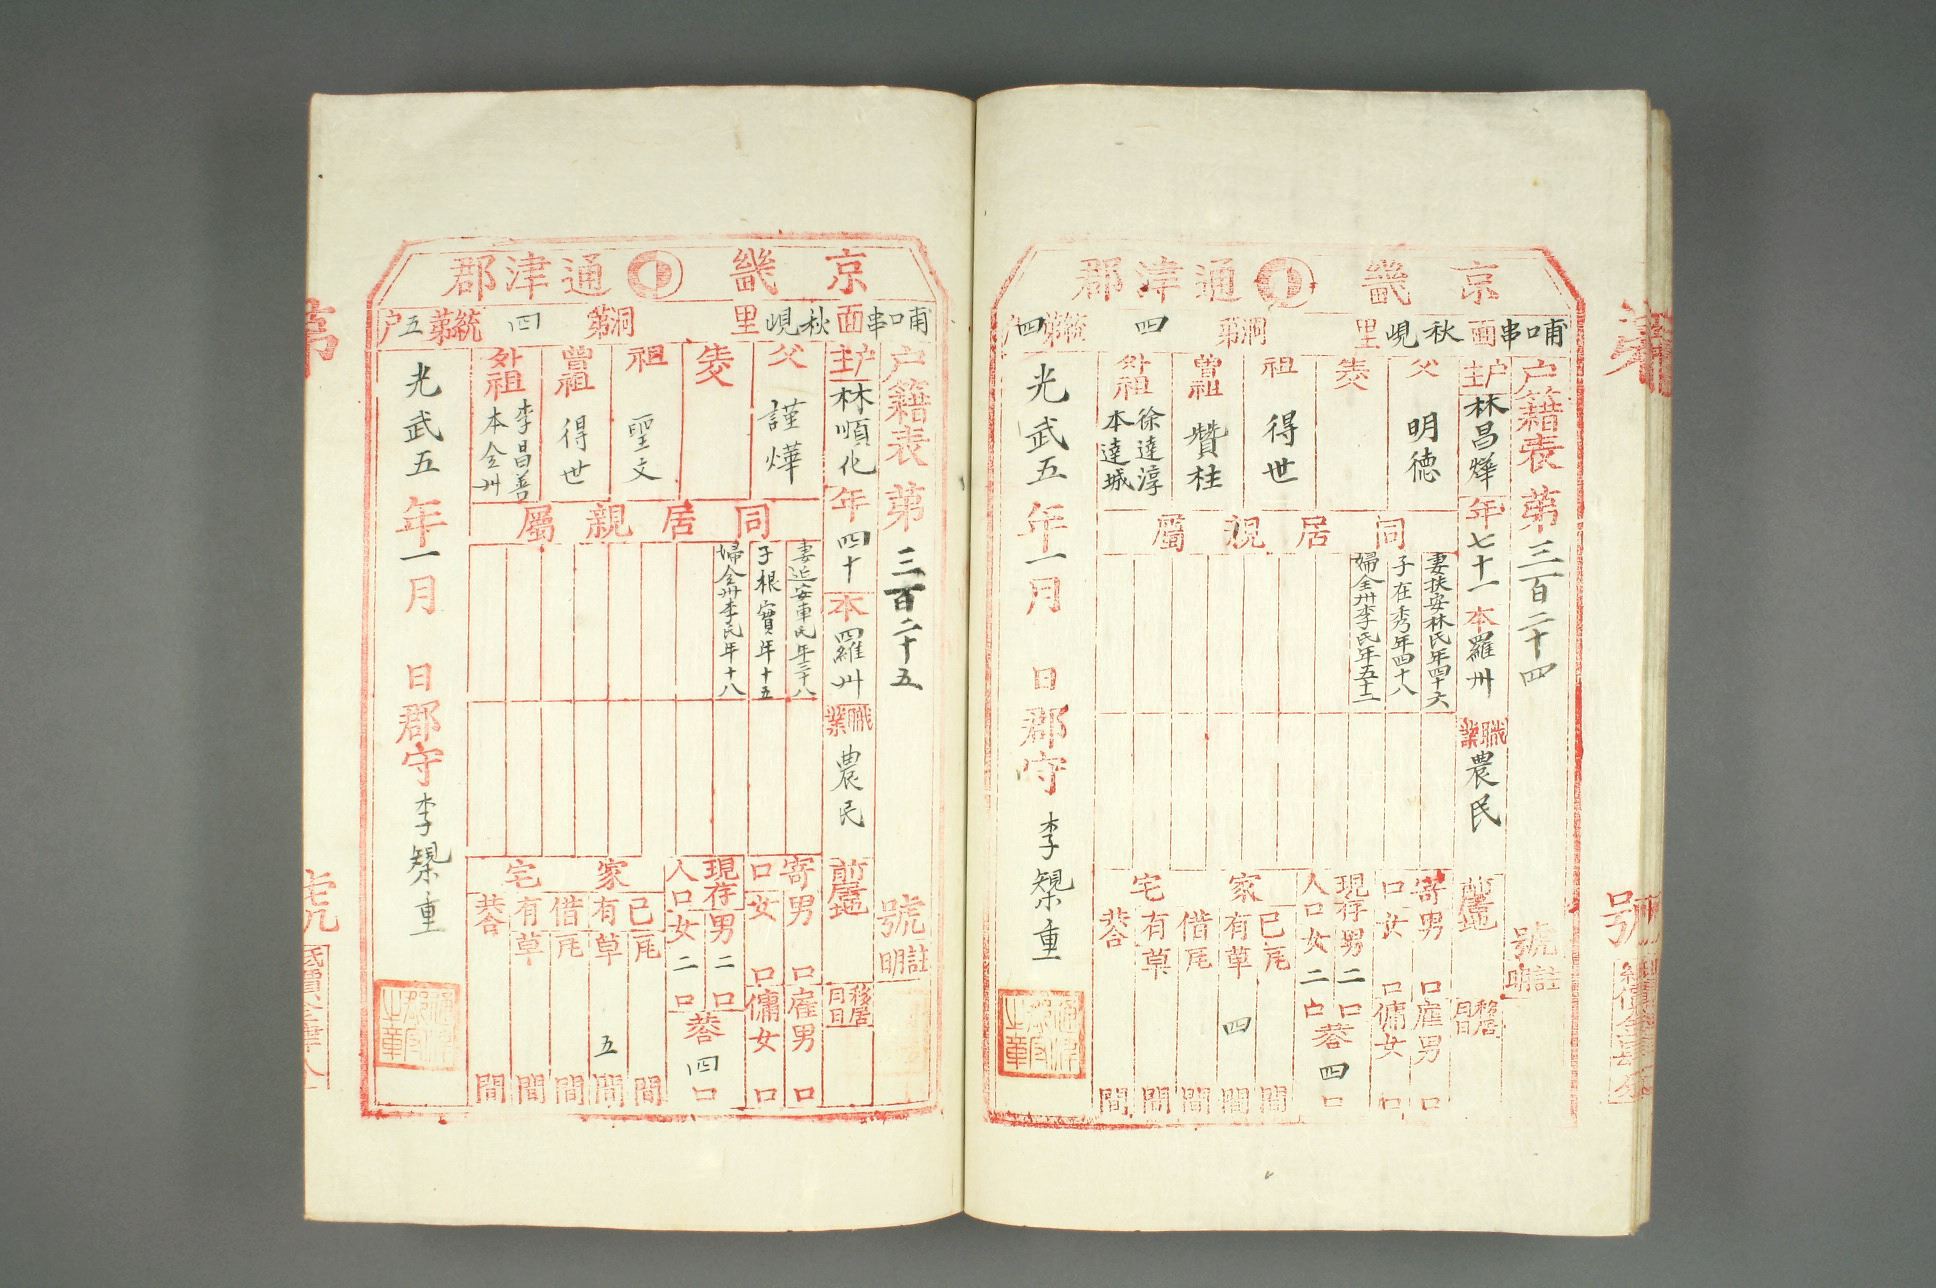 京 畿 通津郡
哺串面 秋峴里 洞第 四 統第四戶
戶籍表 第三百二十四 號
註明
戶主 林昌燁 年七十一 本羅州 職業 農民 前居地 移居 月日
父 明德
養父
祖 得世
曾祖 贊柱
外祖 徐達淳 本達城
同居親屬
妻扶安林氏年四十六
子在秀年四十八
婦全州李氏年五十二
寄口 男 口 女 口
雇男 口 傭女 口
現存人口 男二口 女二口 共合四口
家宅 己有 瓦 間 草 四 間
借有 瓦 間 草 間
共合 間
光武五年一月 日 郡守 李槼重
京 畿 通津郡
哺串面 秋峴里 洞第 四 統第五戶
戶籍表 第三百二十五 號
註明
戶主 林順化 年四十 本羅州 職業 農民 前居地 移居 月日
父 謹燁
養父
祖 聖文
曾祖 得世
外祖 李昌善 本全州
同居親屬
妻延安車氏年三十八
子根寶年十五
婦全州李氏年十八
寄口 男 口 女 口
雇男 口 傭女 口
現存人口 男二口 女二口 共合四口
家宅 己有 瓦 間 草 五 間
借有 瓦 間 草 間
共合 間
光武五年一月 日 郡守 李槼重
第
號